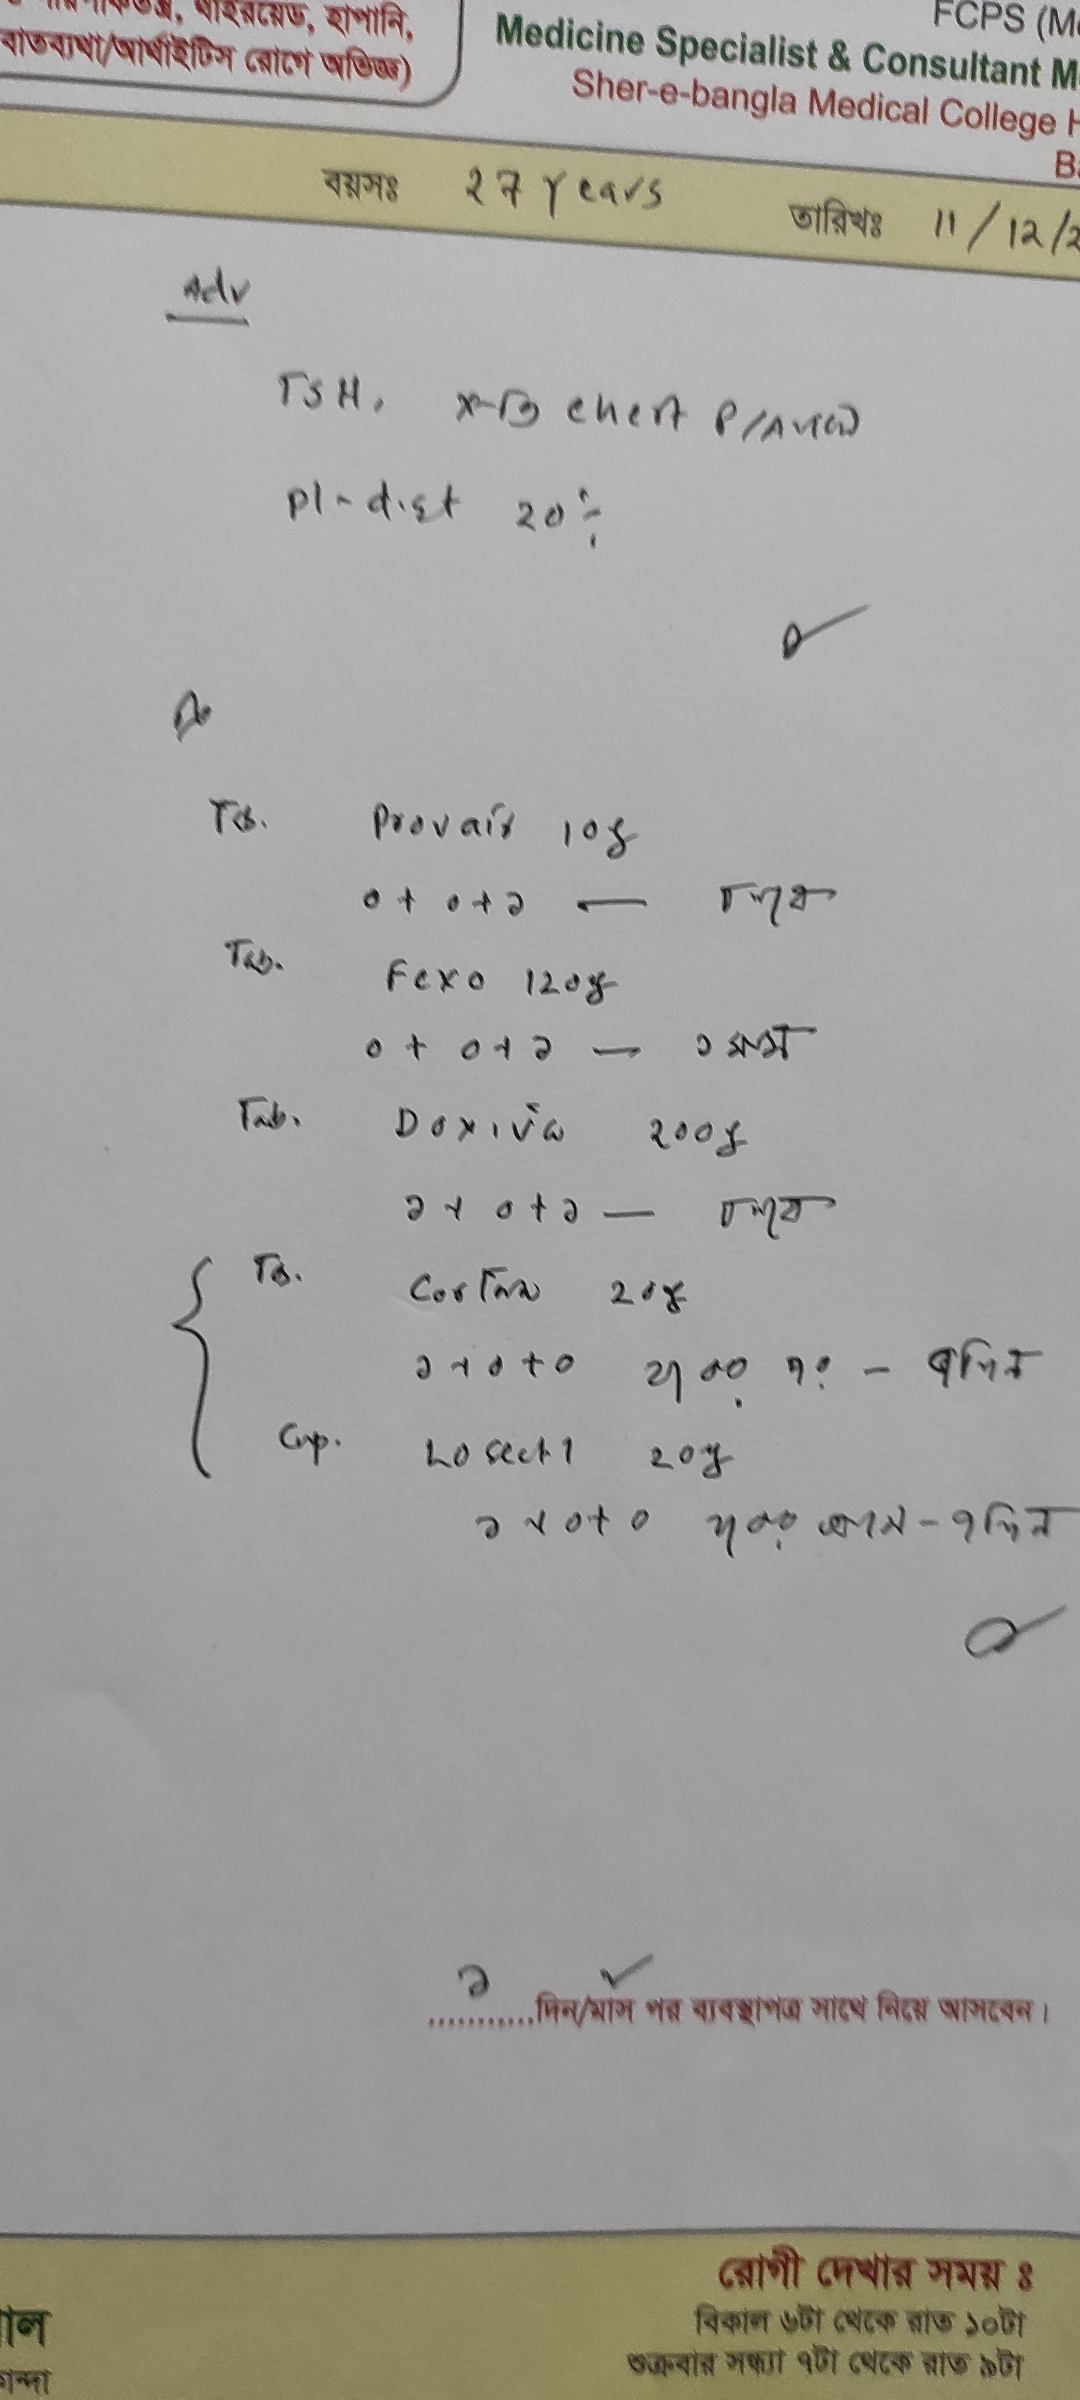 থাইরয়েড, হাপানি,
বাতব্যথা/আর্থাইটিস রোগে অভিজ্ঞ)
FCPS (Me
Medicine Specialist & Consultant M
Sher-e-bangla Medical College H
Ba
বয়সঃ 27 Years
তারিখঃ 11/12/2
Adv
TSH, X-R chest P/A view
Pl- diet 20%
Rx
Tab. Provair 10mg
০+০+১ — চলবে
Tab. Fexo 120mg
০+০+১ — ১ মাস
Tab. Doxiva 200mg
১+০+১ — চলবে
Tab. Cortan 20mg
১+০+০ খাওয়ার পর - ৭ দিন
Cap. Losectil 20mg
১+০+০ খাওয়ার আগে - ৭ দিন
১ ✓
...........দিন/মাস পর ব্যবস্থাপত্র সাথে নিয়ে আসবেন।
রোগী দেখার সময় ঃ
বিকাল ৬টা থেকে রাত ১০টা
শুক্রবার সন্ধ্যা ৭টা থেকে রাত ৯টা
াল
ান্দা